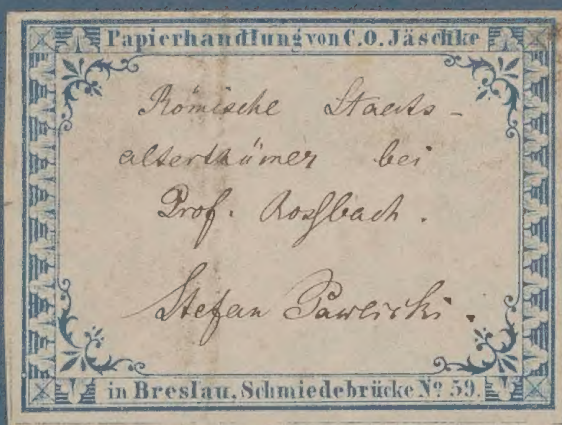 Papierhandlung von C. O. Jäschke
Römische Staats-
alterthümer bei
Prof. Roßbach.
Stefan Pawlicki.
in Breslau, Schmiedebrücke No 59.